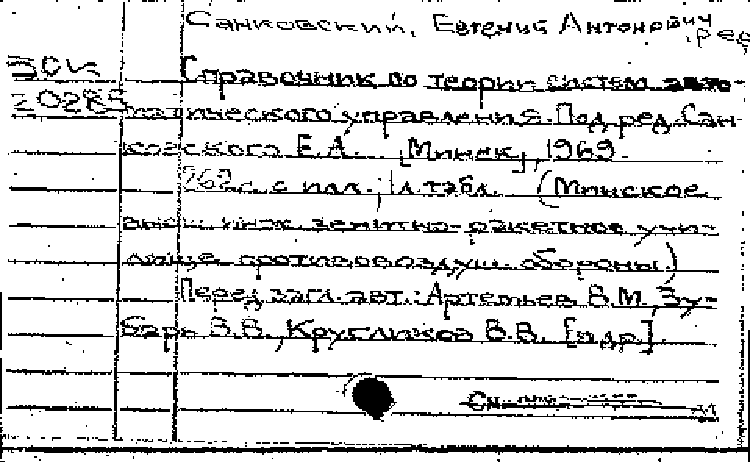 Санковский, Евгений Антонович, ред
30К Справочник по теории систем авто-
20285 матического управления. Под ред. Сан-
ковского Е.А. [Минск], 1969.
262 с. с илл.; 1 л. табл. (Минское
высш. инж. зенитно-ракетное учи-
лище противовоздуш. обороны)
Перед загл. авт.: Артемьев В.М., Зу-
барь В.В., Кругликов В.В. [и др].